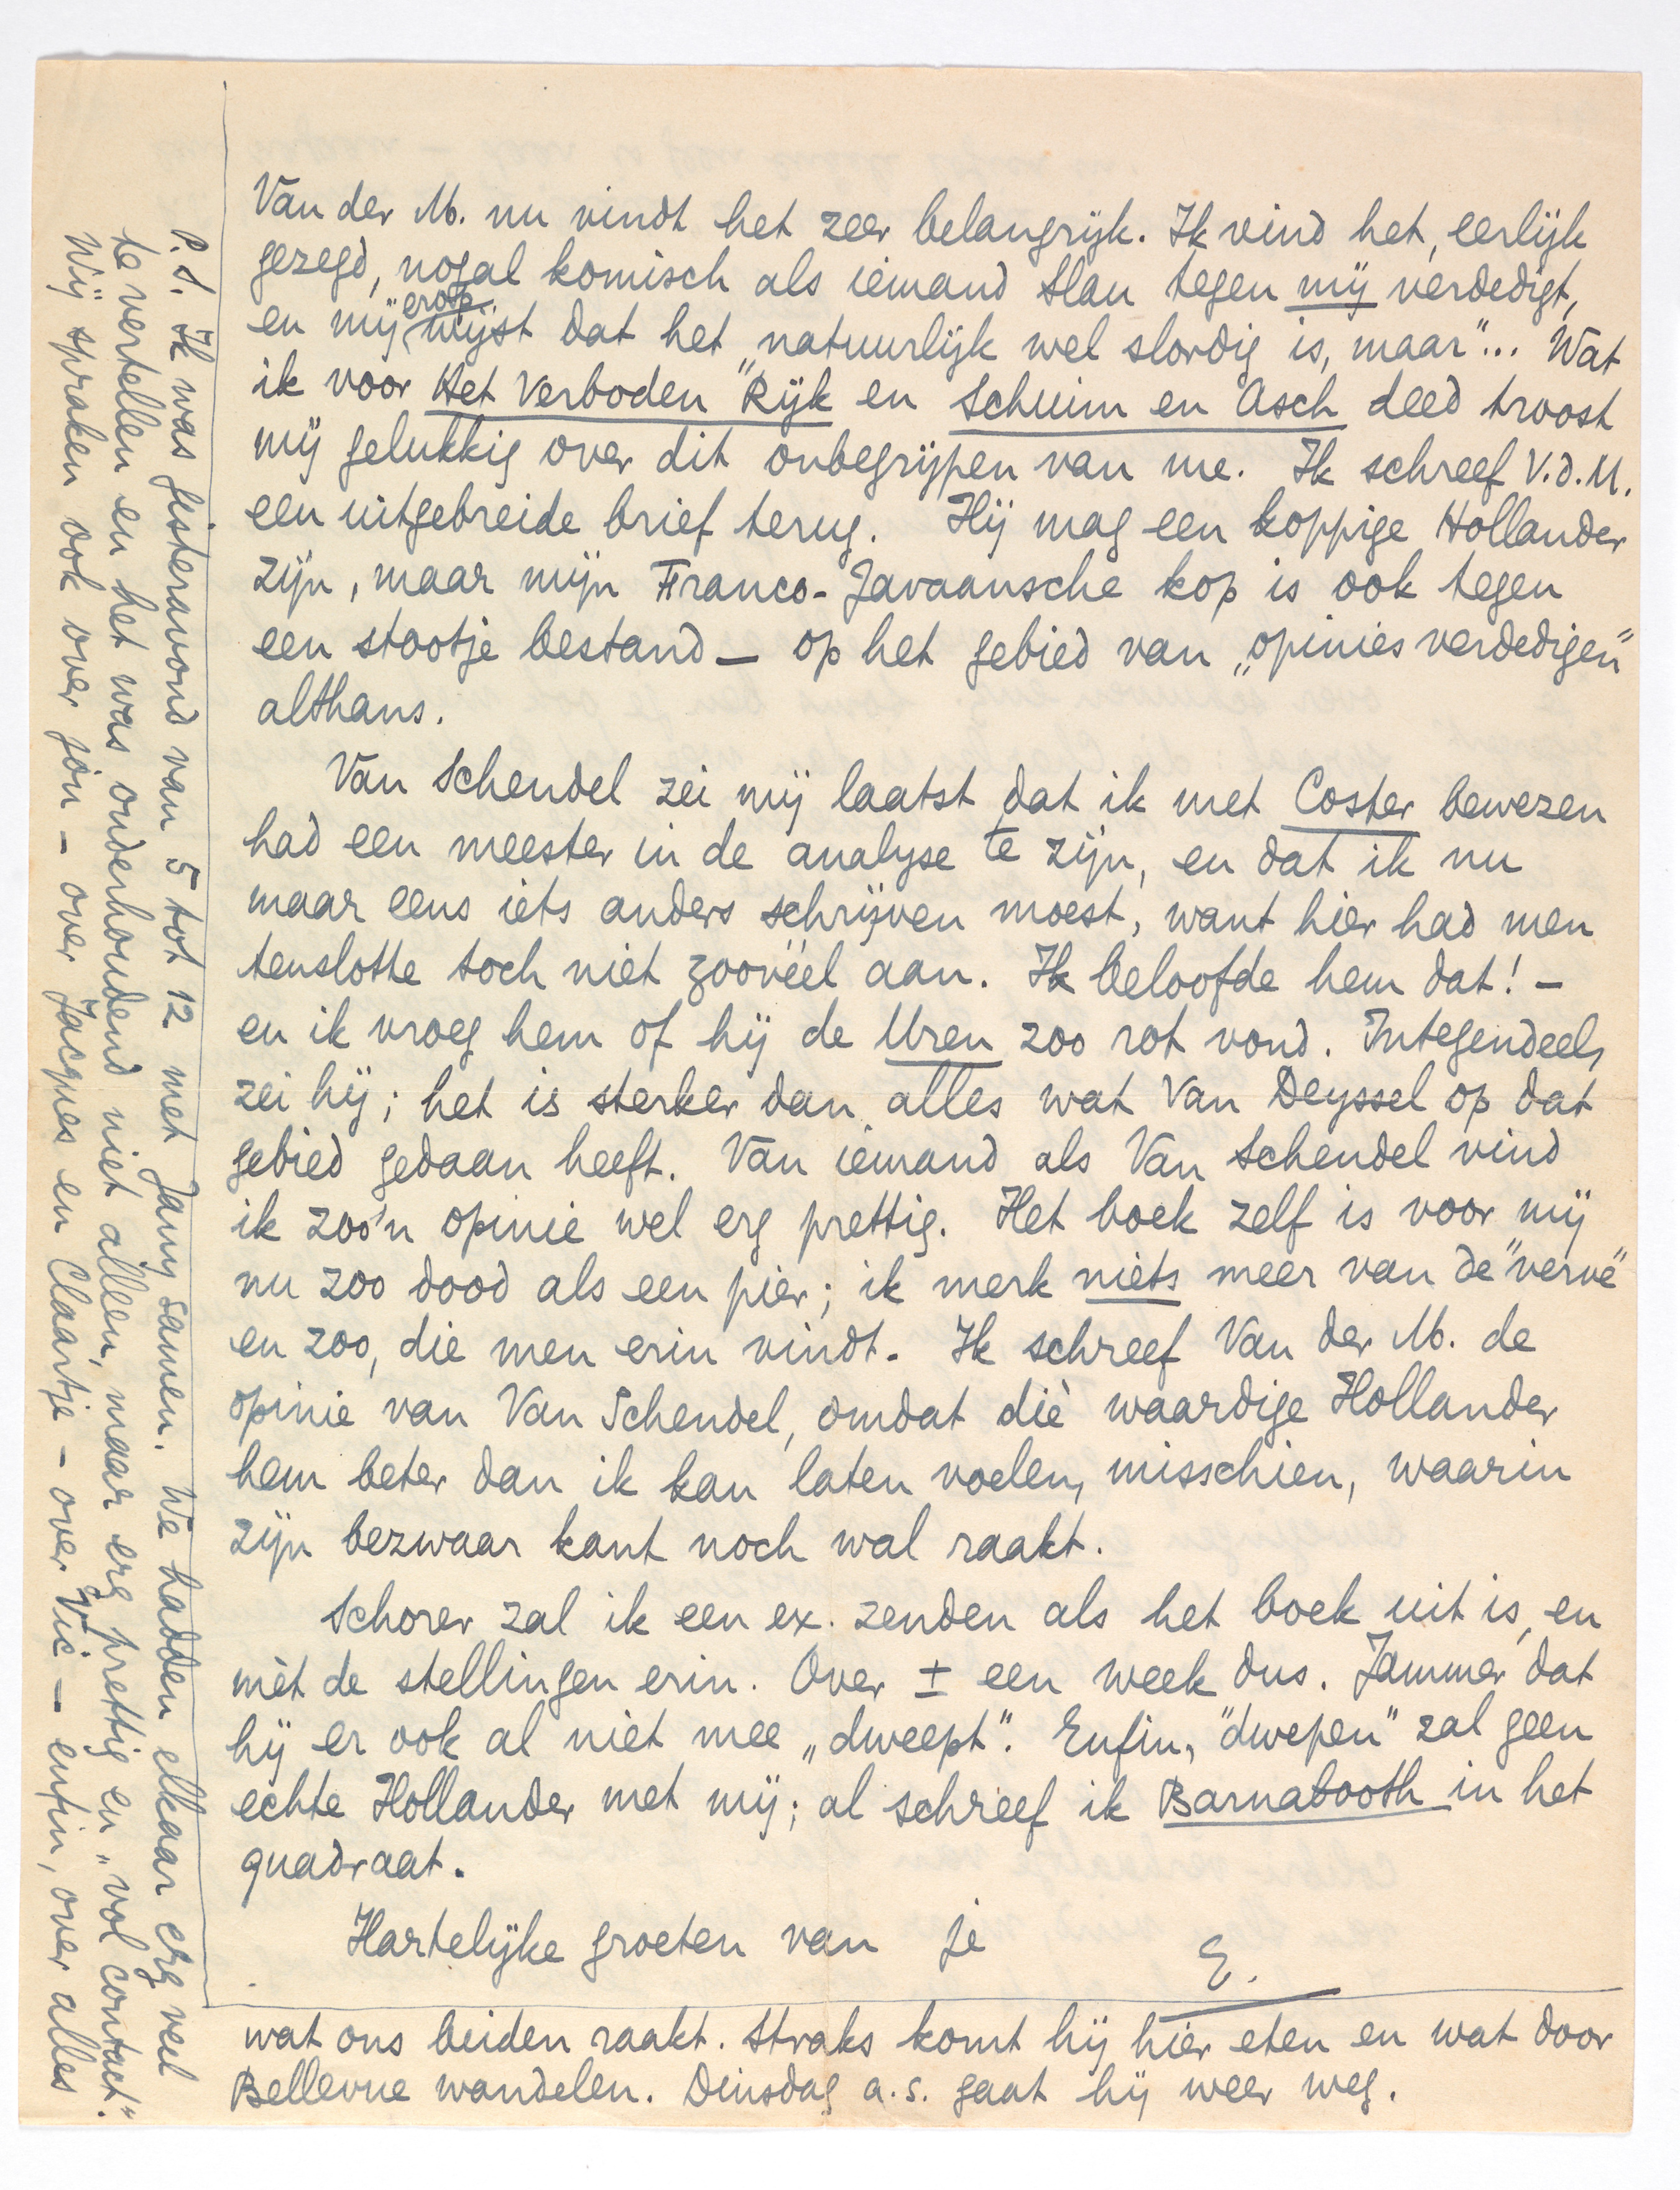 Van der M. nu vindt het zeer belangrijk. Ik vind het, eerlijk
gezegd, nogal komisch als iemand Slau tegen mij verdedigt,
en mij erop wijst dat het „natuurlijk wel slordig is, maar"... Wat
ik voor Het Verboden Rijk en Schuim en Asch deed troost
mij gelukkig over dit onbegrijpen van me. Ik schreef V.d.M.
een uitgebreide brief terug. Hij mag een koppige Hollander
zijn, maar mijn Franco-Javaansche kop is ook tegen
een stootje bestand — op het gebied van „opinies verdedigen"
althans.
Van Schendel zei mij laatst dat ik met Coster bewezen
had een meester in de analyse te zijn, en dat ik nu
maar eens iets anders schrijven moest, want hier had men
tenslotte toch niet zoovéel aan. Ik beloofde hem dat! –
en ik vroeg hem of hij de Uren zoo rot vond. Integendeel,
zei hij; het is sterker dan alles wat Van Deyssel op dat
gebied gedaan heeft. Van iemand als Van Schendel vind
ik zoo'n opinie wel erg prettig. Het boek zelf is voor mij
nu zoo dood als een pier; ik merk niets meer van de "verve"
en zoo, die men erin vindt. Ik schreef Van der M. de
opinie van Van Schendel, omdat dìe waardige Hollander
hem beter dan ik kan laten voelen, misschien, waarin
zijn bezwaar kant noch wal raakt.
Schorer zal ik een ex. zenden als het boek uit is, en
mèt de stellingen erin. Over ± een week dus. Jammer dat
hij er ook al niet mee „dweept". Enfin, "dwepen" zal geen
echte Hollander met mij; al schreef ik Barnabooth in het
quadraat.
Hartelijke groeten van je
E.
P.S. Ik was gisteravond van 5 tot 12 met Jany samen. We hadden elkaar erg veel
te vertellen en het was onderhoudend niet alleen, maar erg prettig en „vol contact".
Wij spraken ook over jou – over Jacques en Claartje – over Vic – enfin, over alles
wat ons beiden raakt. Straks komt hij hier eten en wat door
Bellevue wandelen. Dinsdag a.s. gaat hij weer weg.